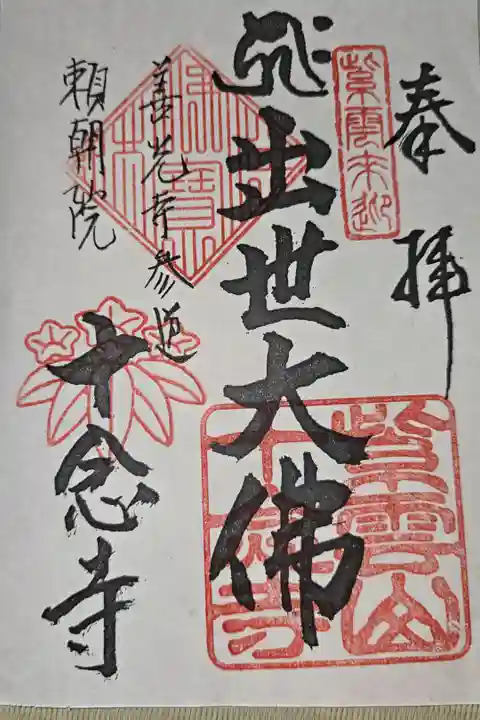 奉拝
紫雲来迎
出世大佛
善光寺参道
頼朝院
十念寺
紫雲山
十念寺